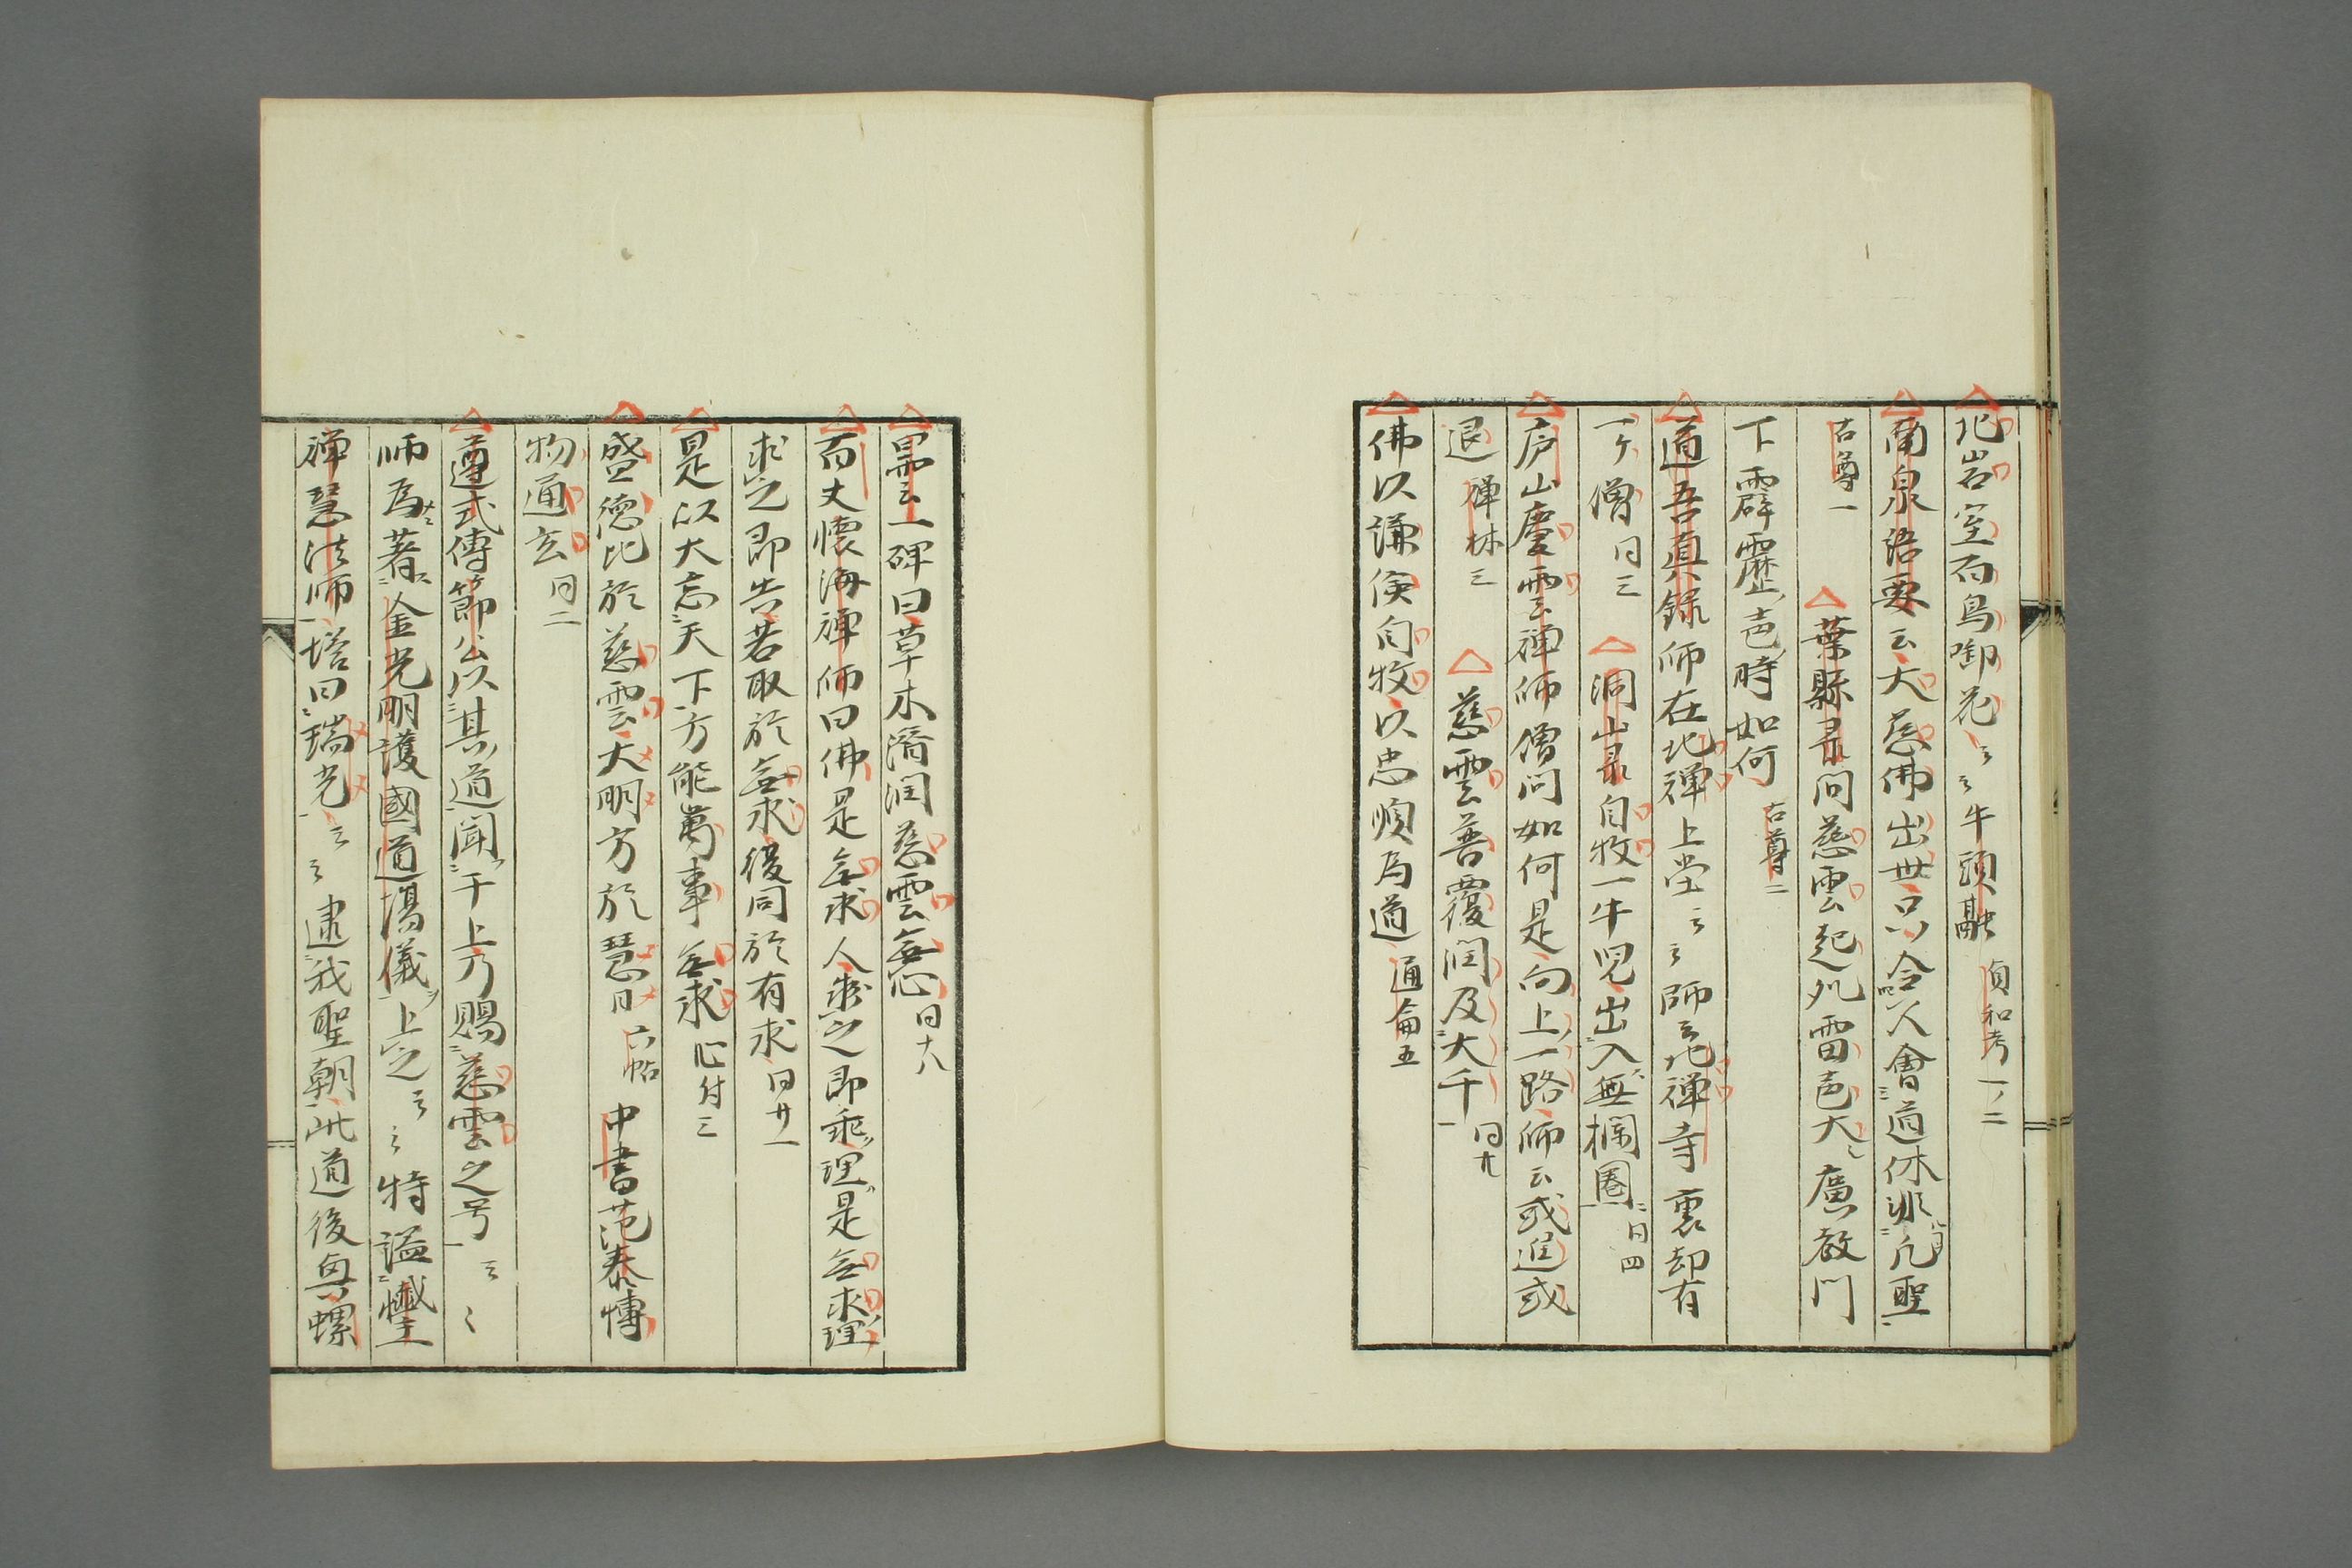 北岩室百鳥啣花云云牛頭融 貞和考一ノ二
南泉語要云大慈佛出世只令人會道休非凡聖
古尊一 葉縣录問慈雲起処雷声大廣教門
下霹靂声時如何 古尊二
道吾真録師在北禅上堂云云師云北禅寺裏却有
一ケ僧 同三 洞山录自牧一牛児出入無欄圏 同四
庐山慶雲禅師僧問如何是向上一路師云或進或
退 禅林三 慈雲普覆潤及大千 同廿
佛以謙後自牧以忠順為道 通侖五
曇云一碑曰草木濟潤慈雲無心 同十八
百丈懐海禅師曰佛是無求人求之即乖理是無求理
求之即失若取於無求復同於有求 同廿一
是以大忘天下方能萬事無求 心付三
盛德比於慈雲大明方於慧日 六帖 中書范泰博
物通玄 同二
遵式傳節公以其道聞于上乃賜慈雲之号云云
師為著金光明護國道場儀上之云云特謚懺主
禅慧法師塔曰瑞光云云逮我聖朝此道後與螺